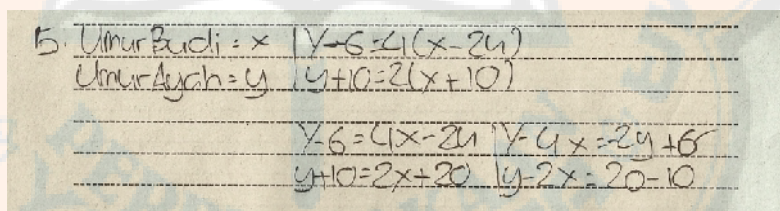 15. Umur Budi = x | y-6=4(x-24)
Umur Ayah = y | y+10=2(x+10)
y-6=4x-24 | y-4x=-24+6
y+10=2x+20 | y-2x=20-10